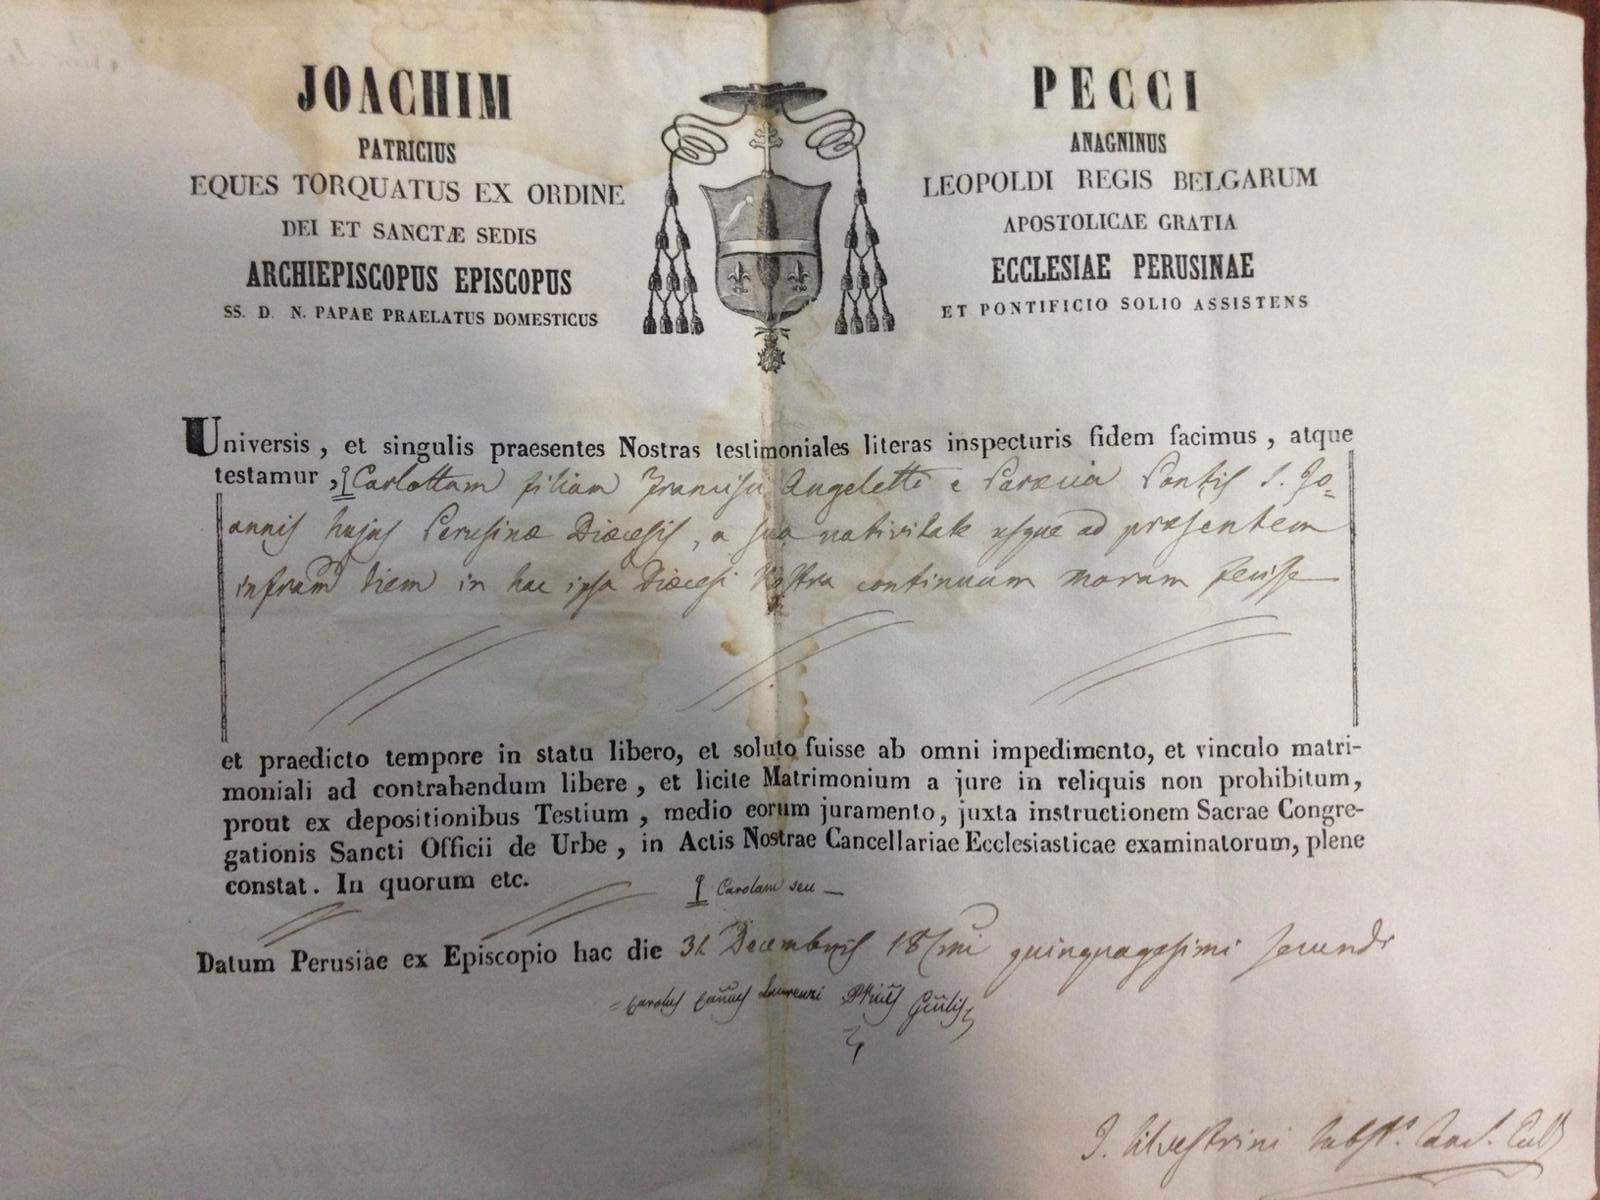 JOACHIM PECCI
PATRICIUS ANAGNINUS
EQUES TORQUATUS EX ORDINE LEOPOLDI REGIS BELGARUM
DEI ET SANCTÆ SEDIS APOSTOLICAE GRATIA
ARCHIEPISCOPUS EPISCOPUS ECCLESIAE PERUSINAE
SS. D. N. PAPAE PRAELATUS DOMESTICUS ET PONTIFICIO SOLIO ASSISTENS
Universis, et singulis praesentes Nostras testimoniales literas inspecturis fidem facimus, atque
testamur, Carlottam filiam Francisci Angeletti e Paræcia Pontis S. Jo=
annis hujus Perusinæ Diœcesis, a sua nativitate usque ad præsentem
infram diem in hac ipsa Diœcesi Nostra continuam moram fecisse
et praedicto tempore in statu libero, et soluto fuisse ab omni impedimento, et vinculo matri-
moniali ad contrahendum libere, et licite Matrimonium a jure in reliquis non prohibitum,
prout ex depositionibus Testium, medio eorum juramento, juxta instructionem Sacrae Congre-
gationis Sancti Officii de Urbe, in Actis Nostrae Cancellariae Ecclesiasticae examinatorum, plene
constat. In quorum etc.
Carolam seu
Datum Perusiae ex Episcopio hac die 31 Decembris 18 quinquagesimi secundi
= Carolus Laurenzi
Silvestrini